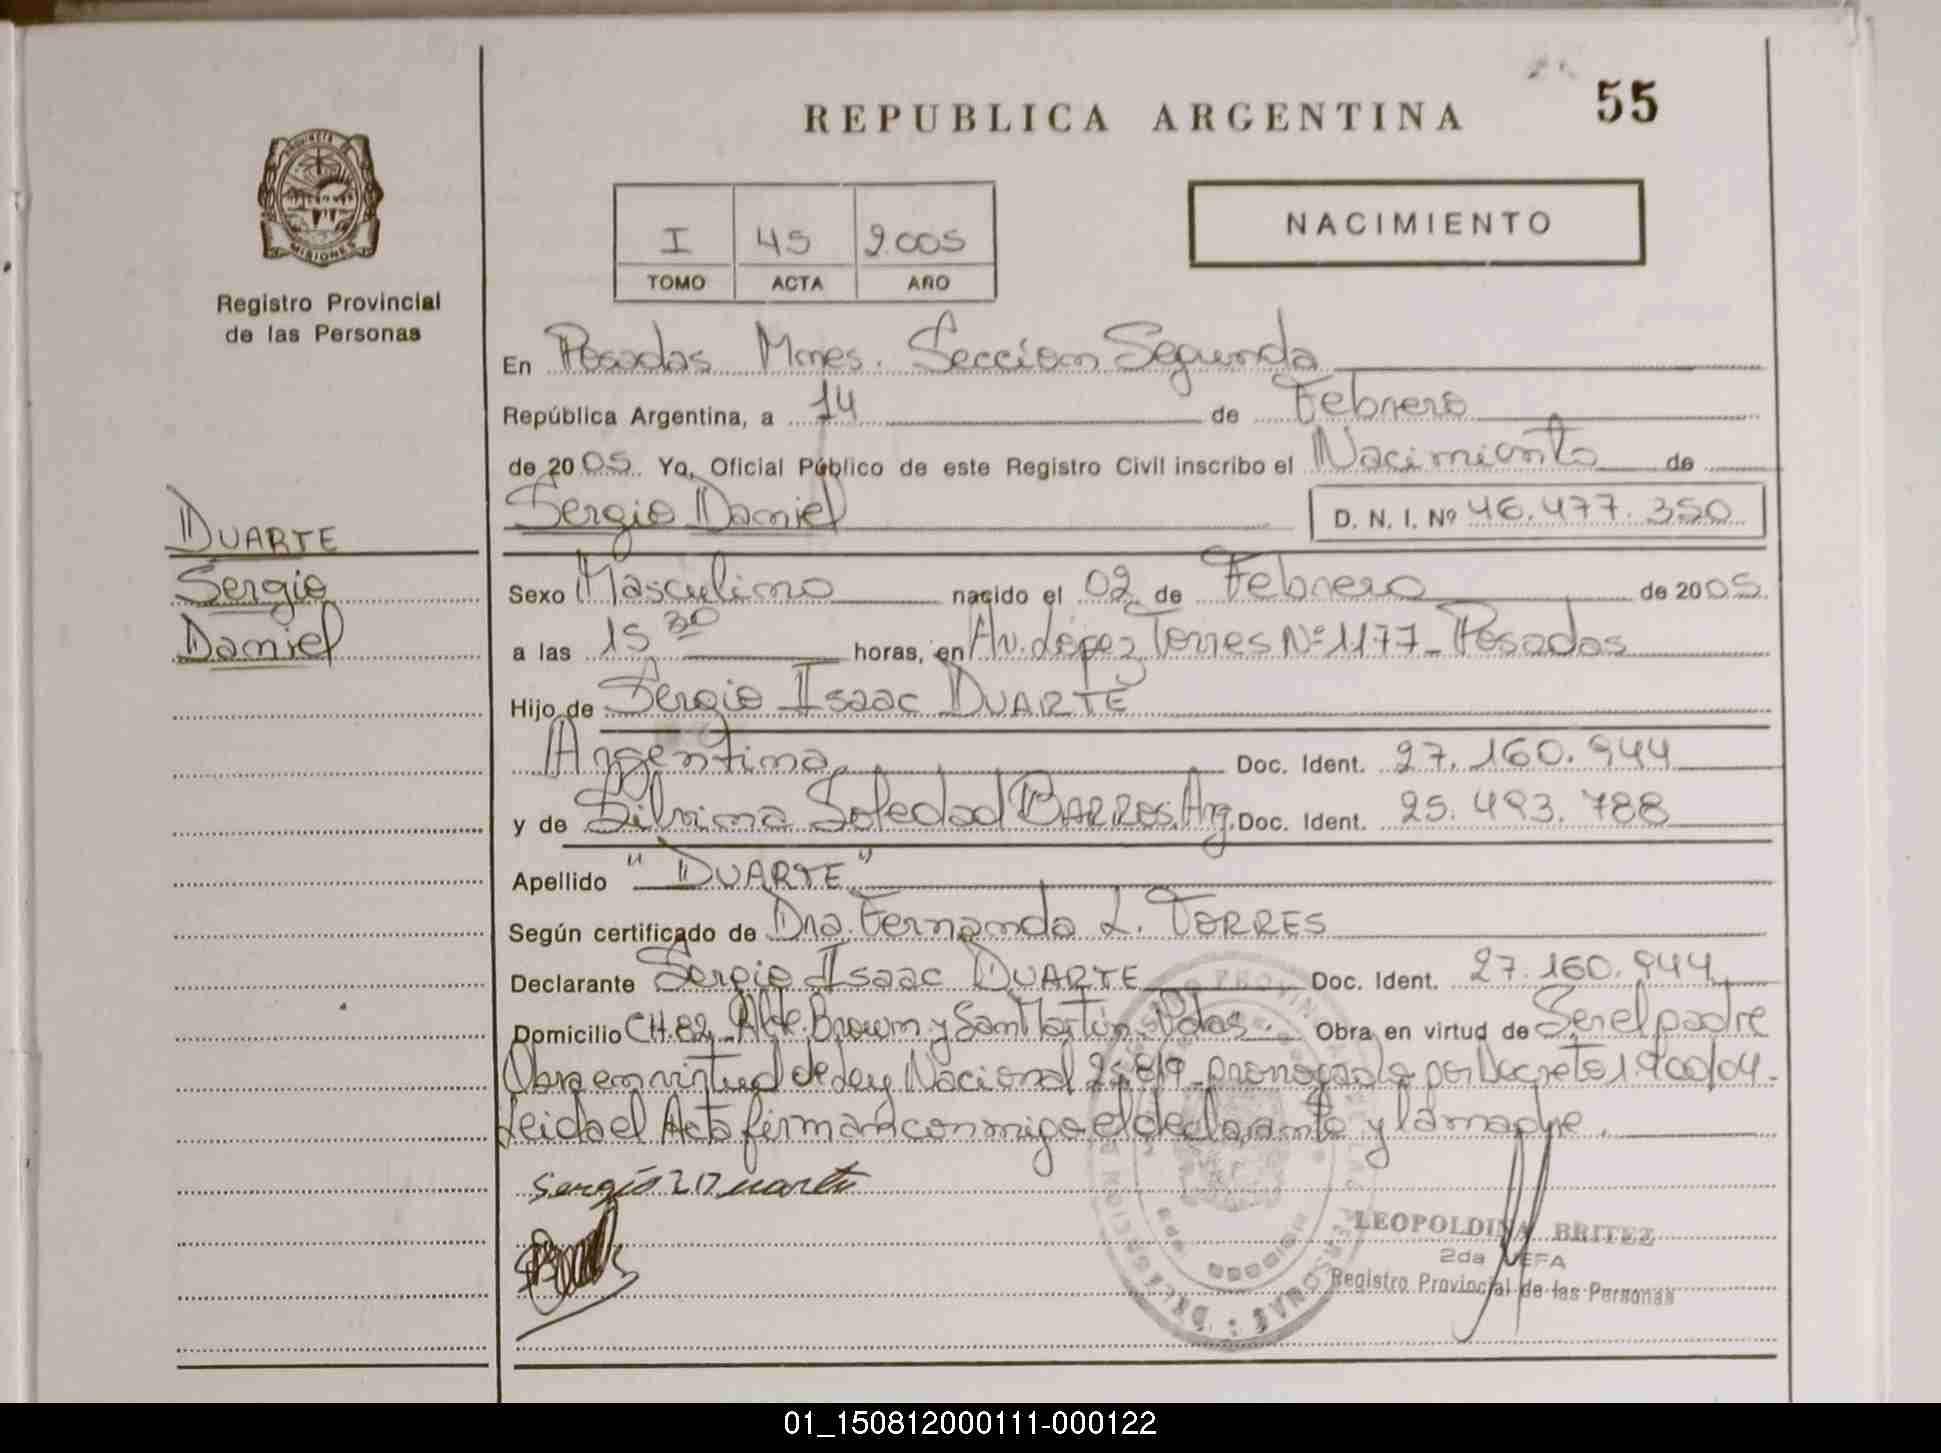 REPUBLICA ARGENTINA
55
PROVINCIA DE
MISIONES
Registro Provincial
de las Personas
NACIMIENTO
I 45 2.005
TOMO ACTA AÑO
En Posadas Mnes. Seccion Segunda
República Argentina, a 14 de Febrero
de 2005. Yo, Oficial Público de este Registro Civil inscribo el Nacimiento de
Sergio Daniel
D. N. I. Nº 46.477.350
DUARTE
Sergio
Daniel
Sexo Masculino nacido el 02 de Febrero de 2005.
a las 15 30 horas, en Av. López Torres Nº 1177 - Posadas
Hijo de Sergio Isaac DUARTE
Argentina Doc. Ident. 27.160.944
y de Silvina Soledad BARROS. Arg. Doc. Ident. 25.493.788
Apellido "DUARTE"
Según certificado de Dra. Fernanda L. TORRES
Declarante Sergio Isaac DUARTE Doc. Ident. 27.160.944
Domicilio CH. 82 Alte. Brown y San Martín - Pdas. Obra en virtud de Ser el padre
Obra en virtud de Ley Nacional 25.819 prorrogada por Decreto 1900/04.
Leida el Acta firman conmigo el declarante y la madre.
Sergio I Duarte
LEOPOLDINA BRITEZ
2da JEFA
Registro Provincial de las Personas
01_150812000111-000122